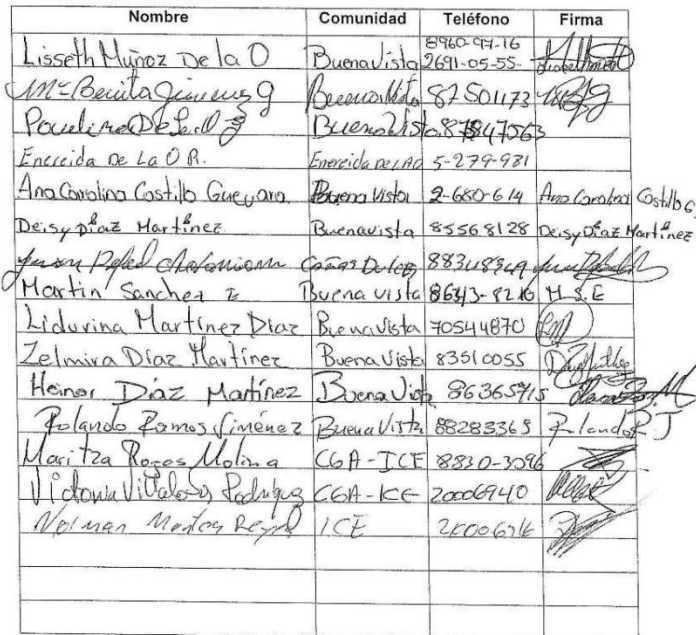 Nombre Comunidad Teléfono Firma
Lisseth Muñoz De la O Buena Vista 8960-97-16 2691-05-55-
Mª Benita Jimenez g Buena Vista 87501173
Paulina De La O Buena Vista
Enereida De La O R. Enereida De La O 5-279-981
Ana Carolina Castillo Guevara Buena Vista 2-680-614 Ana Carolina Castillo G.
Deisy Díaz Martínez Buenavista 85568128 Deisy Díaz Martínez
Cañas Dulces 88348349
Martin Sanchez E Buena vista 8643-8216 M.S.E
Lidurina Martínez Díaz Buenavista 70544870
Zelmira Díaz Martínez Buena Vista 83510055
Heiner Díaz Martínez Buena Vista 86365715
Rolando Ramos Jiménez Buena Vista 88283365 Rolando R J
Maritza Rojas Molina CGA-ICE 8830-3096
Victoria Villalobos Rodríguez CGA-ICE 20006940
Norman Montes ICE